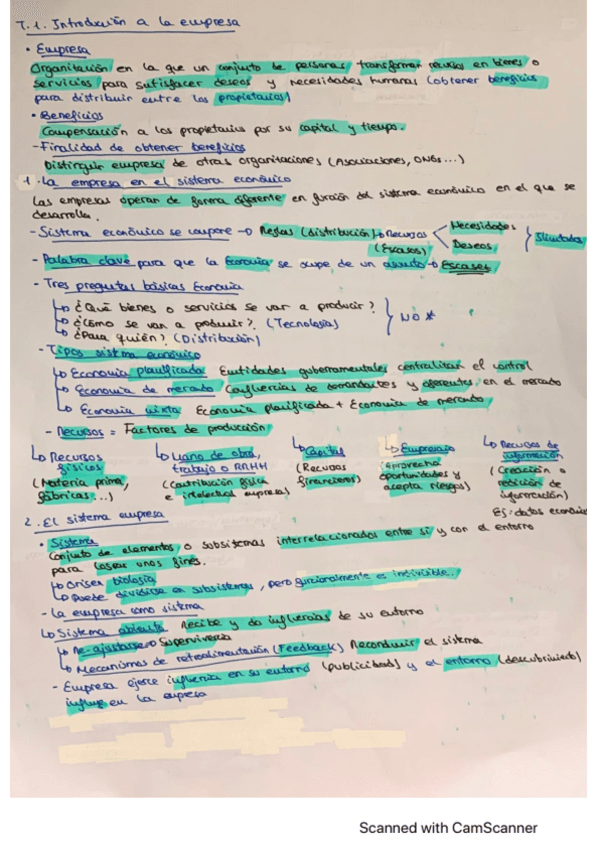 T.1. Introducción a la empresa
• Empresa
Organización en la que un conjunto de personas transforman recursos en bienes o
servicios para satisfacer deseos y necesidades humanas (obtener beneficios
para distribuir entre los propietarios)
• Beneficios
Compensación a los propietarios por su capital y tiempo.
- Finalidad de obtener beneficios
Distinguir empresa de otras organizaciones (Asociaciones, ONGs...)
1. La empresa en el sistema económico
Las empresas operan de forma diferente en función del sistema económico en el que se
desarrolla.
- Sistema económico se compone → Reglas (distribución) → Recursos (Escasos) Necesidades Deseos } Ilimitados
- Palabra clave para que la Economía se ocupe de un asunto → Escasez
- Tres preguntas básicas Economía
↳ ¿Qué bienes o servicios se van a producir?
↳ ¿Cómo se van a producir? (Tecnología) } NO *
↳ ¿Para quién? (Distribución)
- Tipos sistema económico
↳ Economía planificada Entidades gubernamentales centralizan el control
↳ Economía de mercado Confluencias de demandantes y oferentes en el mercado
↳ Economía mixta Economía planificada + Economía de mercado
- Recursos = Factores de producción
↳ Recursos físicos (Materia prima, fábricas...)
↳ Mano de obra, trabajo o RRHH (Contribución física e intelectual empresa)
↳ Capital (Recursos financieros)
↳ Empresario (aprovecha oportunidades y acepta riesgos)
↳ Recursos de información (Creación o medición de información)
Ej: datos económicos
2. El sistema empresa
• Sistema
Conjunto de elementos o subsistemas interrelacionados entre sí y con el entorno
para lograr unos fines.
↳ Origen biología
↳ Puede dividirse en subsistemas, pero funcionalmente es indivisible..
- La empresa como sistema
↳ Sistema abierto Recibe y da influencias de su entorno
↳ Re-ajustarse → Supervivencia
↳ Mecanismos de retroalimentación (Feedback) Reconducir el sistema
- Empresa ejerce influencia en su entorno (publicidad) y el entorno (descubrimiento)
influye en la empresa
Scanned with CamScanner